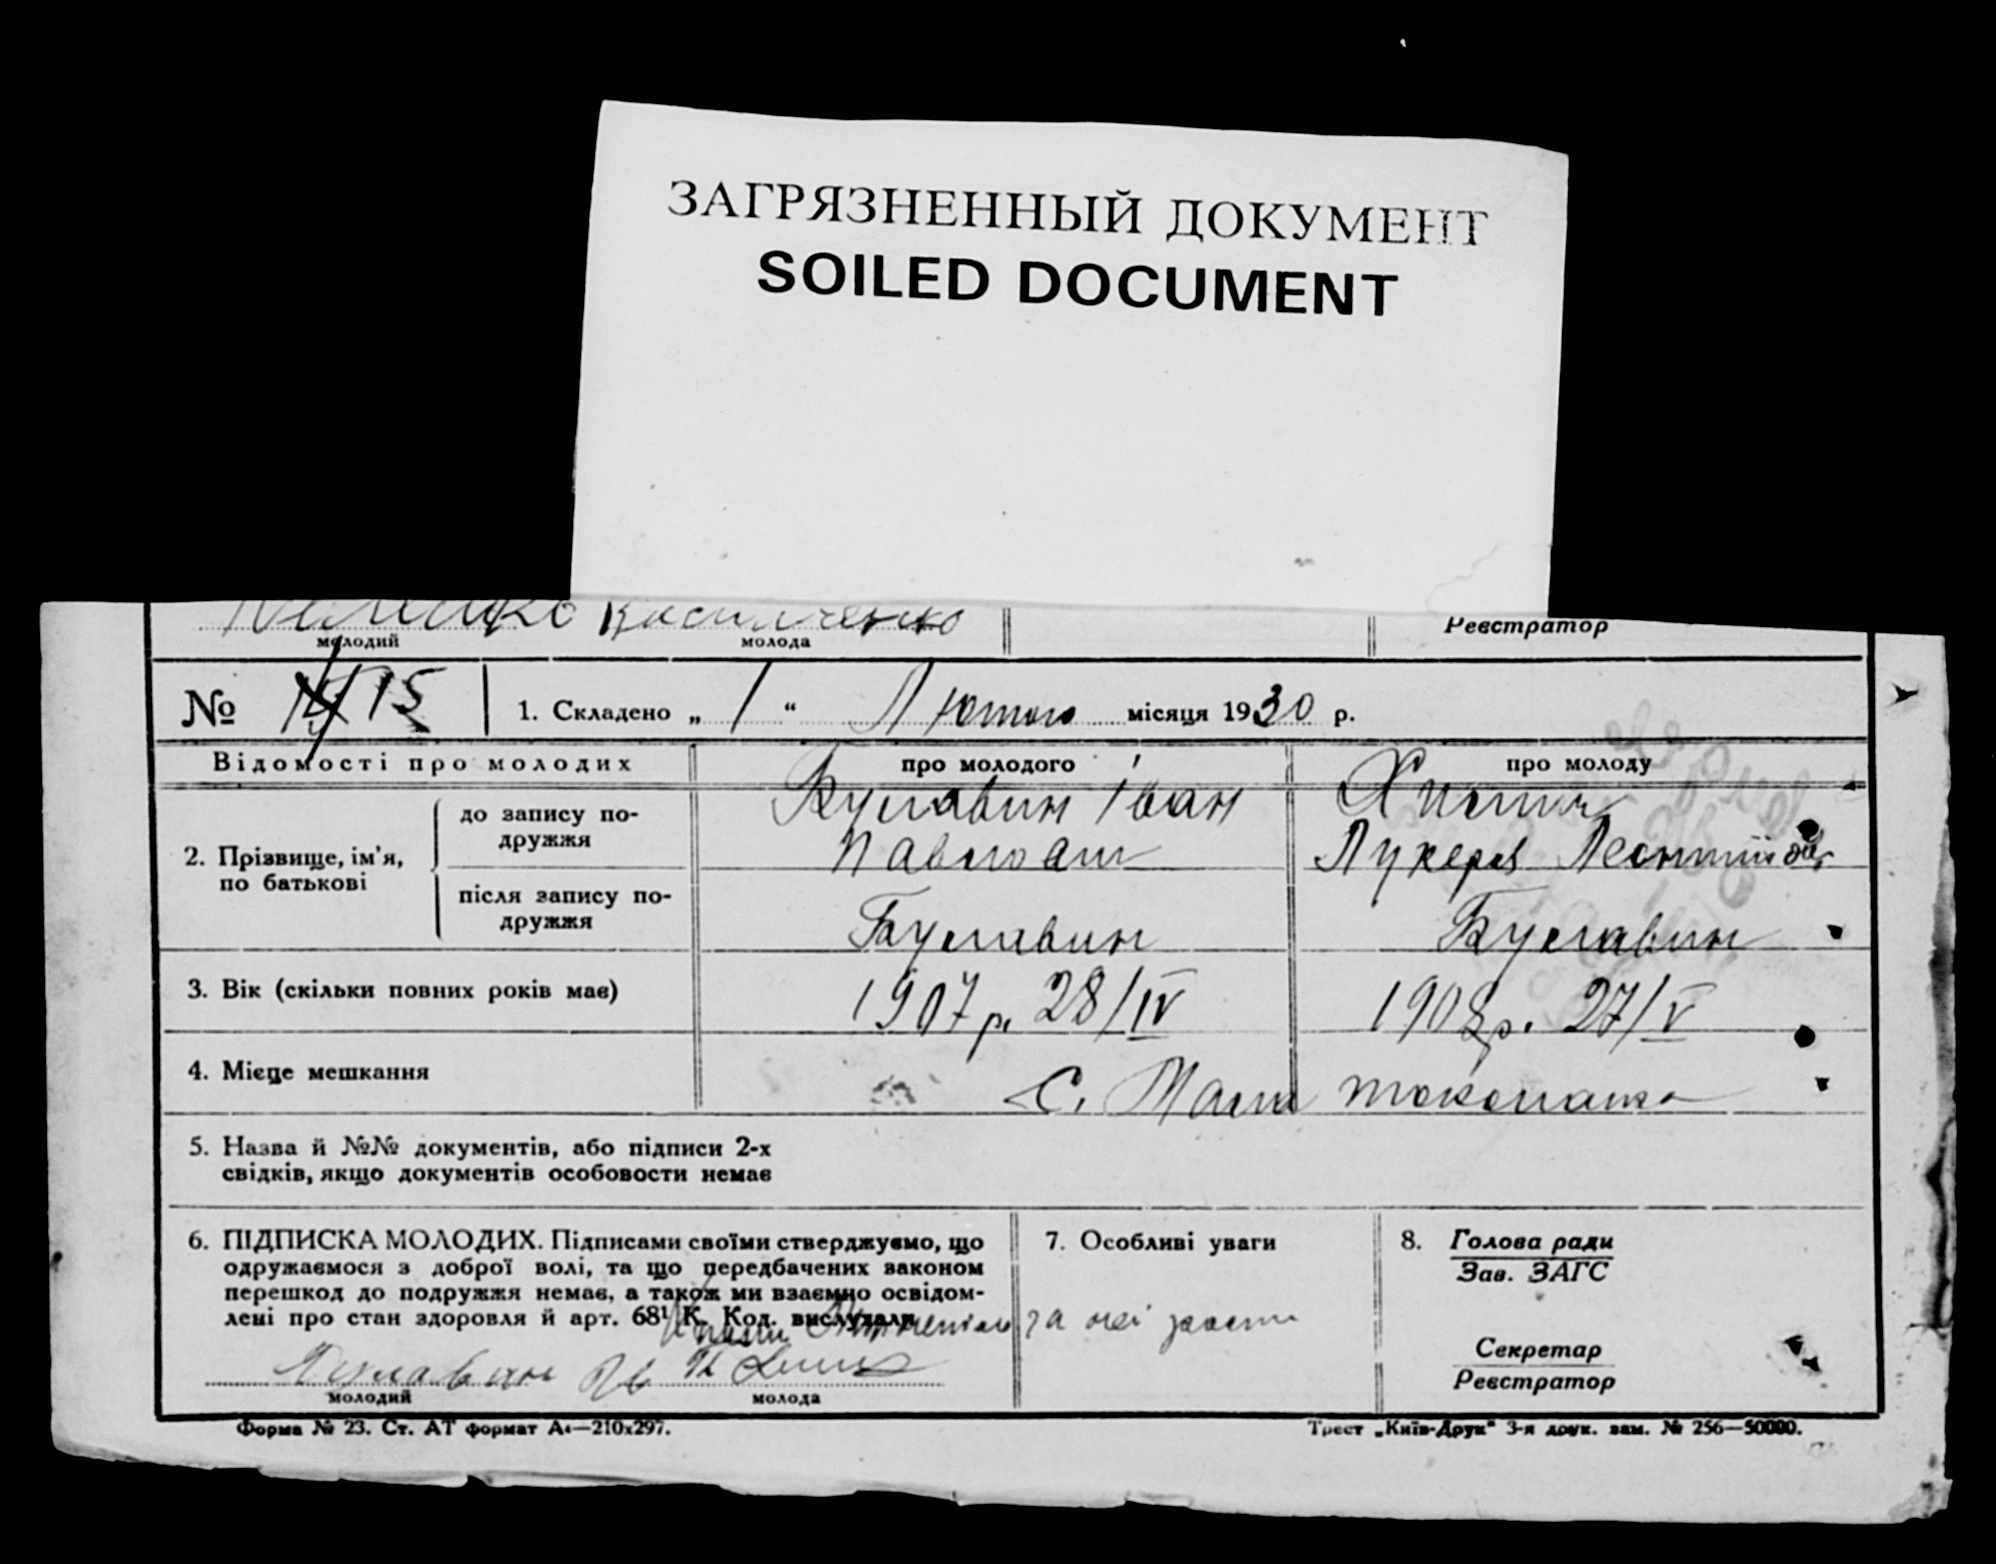 ЗАГРЯЗНЕННЫЙ ДОКУМЕНТ
SOILED DOCUMENT
Василченко
молодий молода Реєстратор
№ 15 1. Складено „ 1 “ Лютого місяця 1930 р.
Відомості про молодих про молодого про молоду
2. Прізвище, ім’я, по батькові
до запису по-
дружжя
Буславин Іван
Павлович
Лукера Леонтіївна
після запису по-
дружжя
Буславин Буславин
3. Вік (скільки повних років має) 1907 р. 28/IV 1908 р. 27/V
4. Місце мешкання С. Мала
5. Назва й №№ документів, або підписи 2-х
свідків, якщо документів особовости немає
6. ПІДПИСКА МОЛОДИХ. Підписами своїми стверджуємо, що
одружаємося з доброї волі, та що передбачених законом
перешкод до подружжя немає, а також ми взаємно освідом-
лені про стан здоровля й арт. 68¹ К. Код. вислухали
Буславин
молодий молода
7. Особливі уваги
8. Голова ради
Зав. ЗАГС
Секретар
Реєстратор
Форма № 23. Ст. АТ формат А₄—210х297. Трест „Київ-Друк“ 3-я друк. зам. № 256—50000.